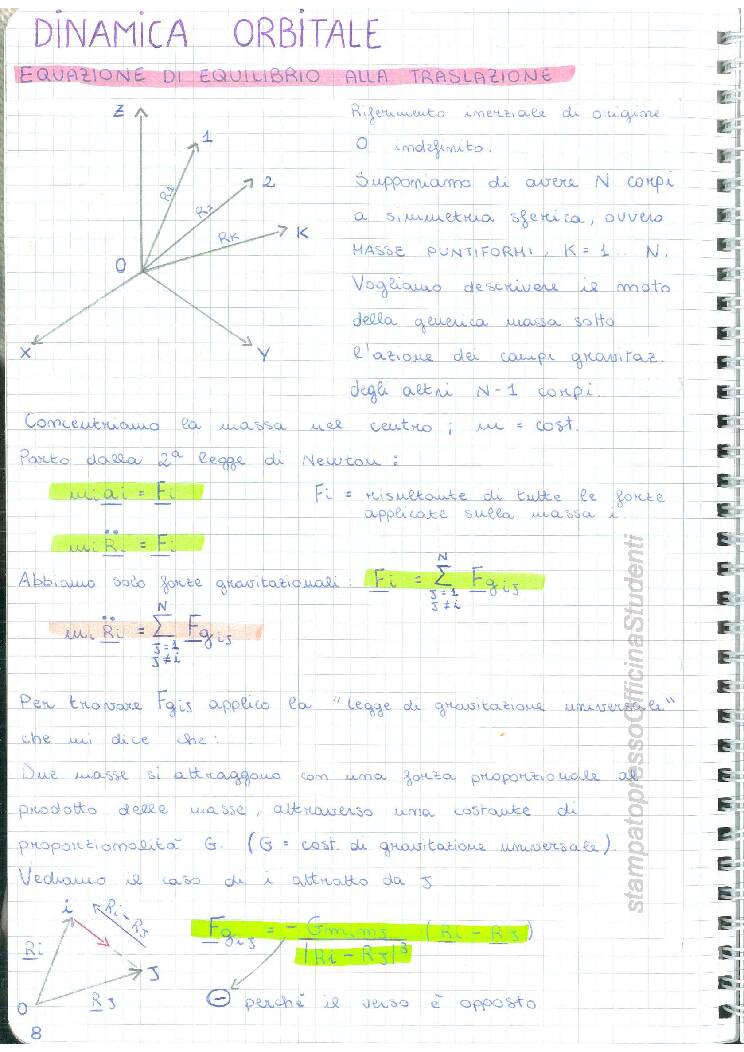 DINAMICA ORBITALE
EQUAZIONE DI EQUILIBRIO ALLA TRASLAZIONE
Z
1
2
K
R1
R2
RK
O
X
Y
Riferimento inerziale di origine
O indefinito.
Supponiamo di avere N corpi
a simmetria sferica, ovvero
MASSE PUNTIFORMI, K = 1... N.
Vogliamo descrivere il moto
della generica massa sotto
l'azione dei campi gravitaz.
degli altri N-1 corpi.
Concentriamo la massa nel centro; m = cost.
Parto dalla 2ª legge di Newton:
mi ai = Fi
Fi = risultante di tutte le forze
applicate sulla massa i.
mi R̈i = Fi
Abbiamo solo forze gravitazionali: Fi = Σ(J=1, J≠i → N) FgiJ
mi R̈i = Σ(J=1, J≠i → N) FgiJ
Per trovare FgiJ applico la "legge di gravitazione universale"
che mi dice che:
Due masse si attraggono con una forza proporzionale al
prodotto delle masse, attraverso una costante di
proporzionalità G. (G = cost. di gravitazione universale).
Vediamo il caso di i attratto da J
i
Ri - RJ
Ri
J
O
RJ
FgiJ = - G mi mJ / |Ri - RJ|³ (Ri - RJ)
⊖ perché il verso è opposto
8
stampatopressoOfficinaStudenti